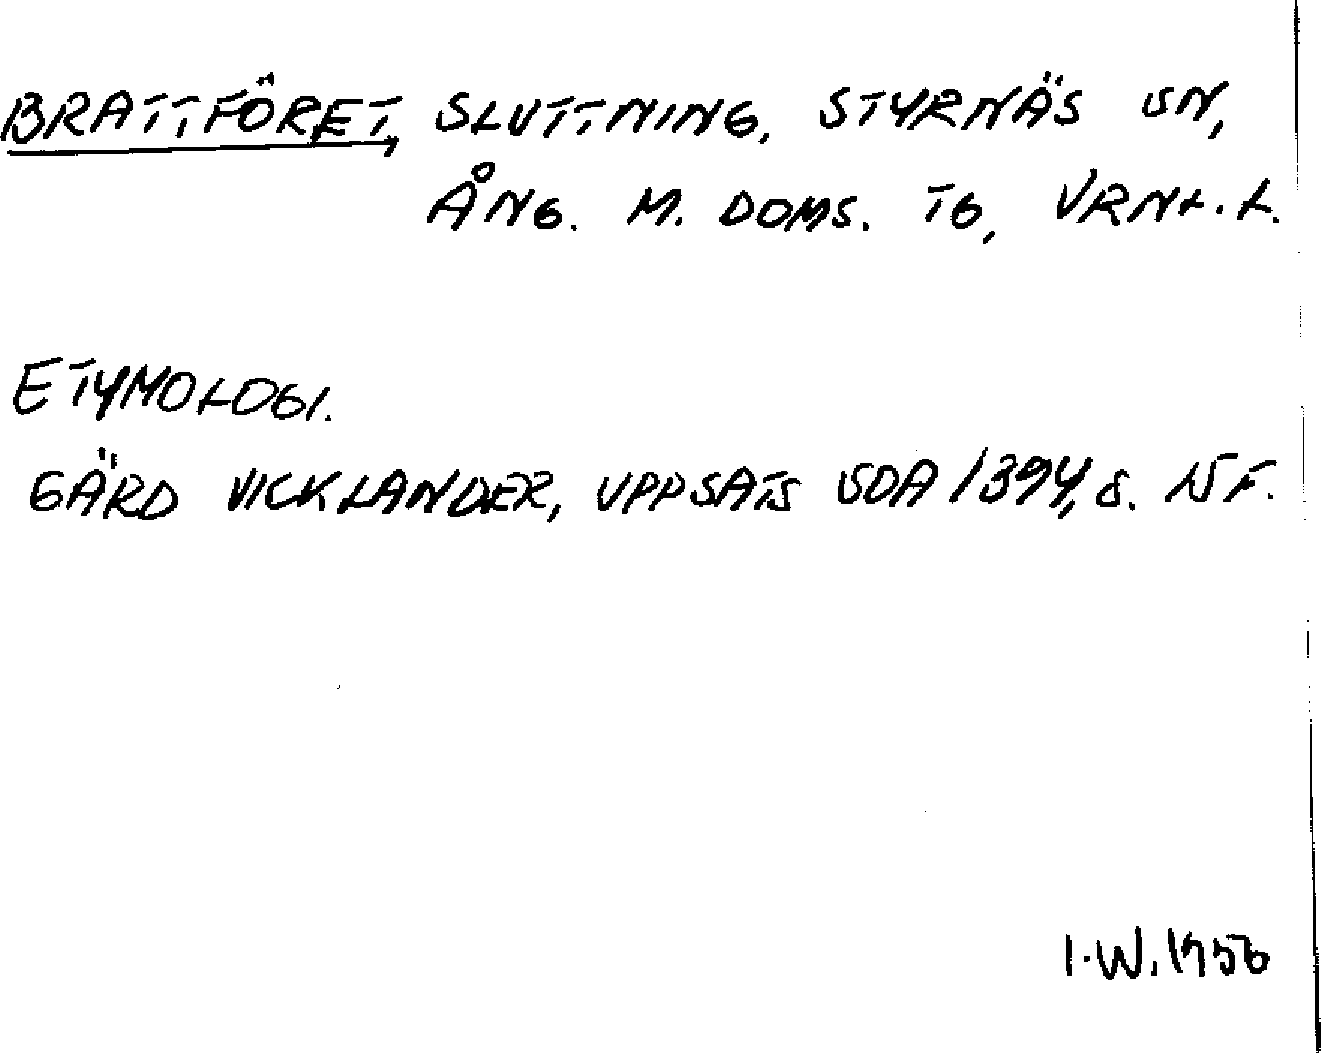 BRATTFÖRET, SLUTTNING, STYRNÄS SN,
ÅNG. M. DOMS. TG, VRNL. L.
ETYMOLOGI.
GÄRD VICKLANDER, UPPSATS SOA 1394, S. 15 F.
I.W. 1956